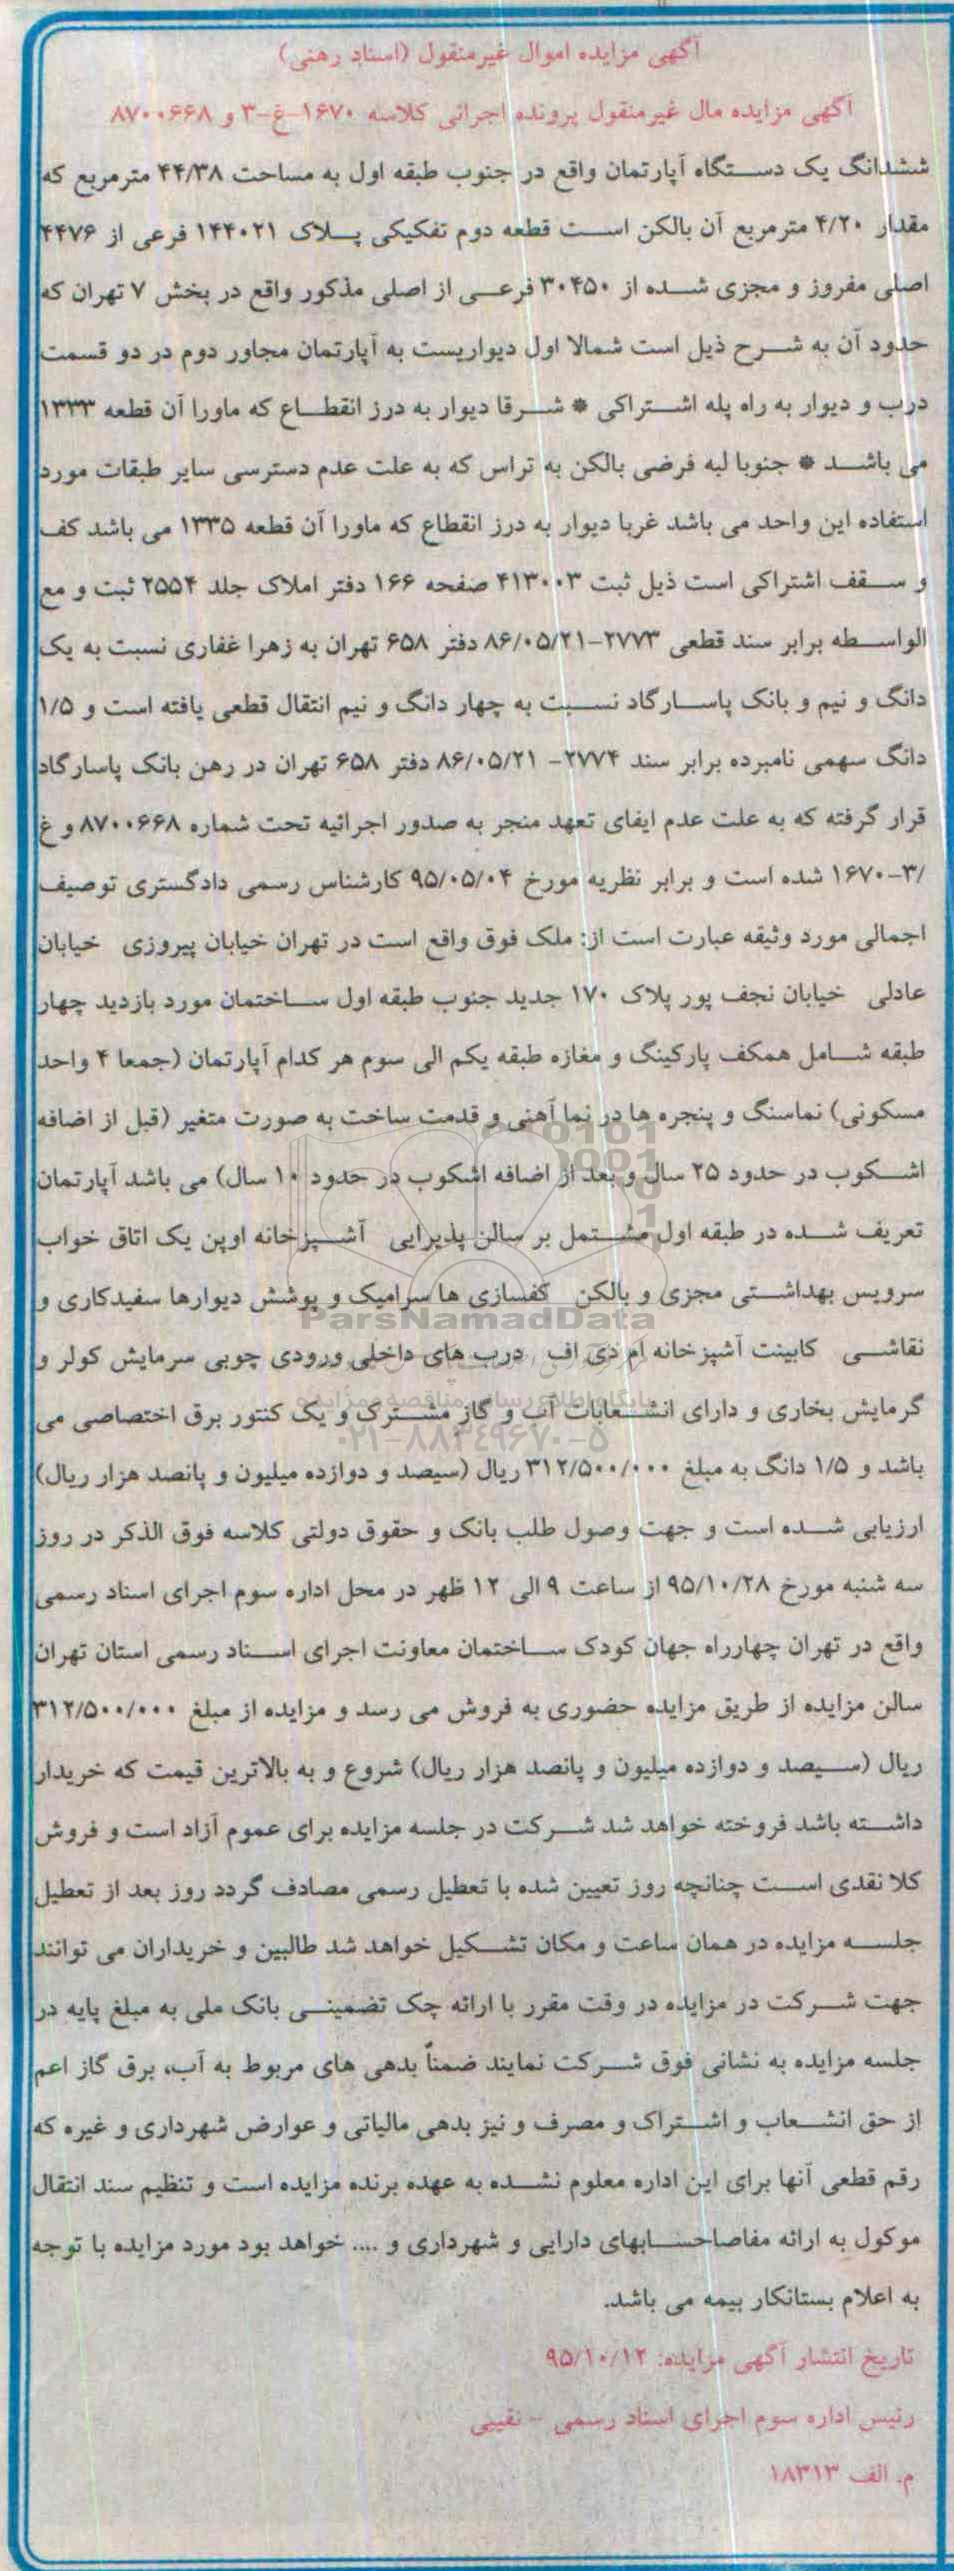 آگهی مزایده اموال غیرمنقول (اسناد رهنی)
آگهی مزایده مال غیرمنقول پرونده اجرائی کلاسه ۱۶۷۰-غ-۳ و ۸۷۰۰۶۶۸
ششدانگ یک دستگاه آپارتمان واقع در جنوب طبقه اول به مساحت ۴۴/۳۸ مترمربع که
مقدار ۴/۲۰ مترمربع آن بالکن است قطعه دوم تفکیکی پلاک ۱۴۴۰۲۱ فرعی از ۴۴۷۶
اصلی مفروز و مجزی شده از ۳۰۴۵۰ فرعی از اصلی مذکور واقع در بخش ۷ تهران که
حدود آن به شرح ذیل است شمالا اول دیواریست به آپارتمان مجاور دوم در دو قسمت
درب و دیوار به راه پله اشتراکی * شرقا دیوار به درز انقطاع که ماورا آن قطعه ۱۳۳۳
می باشد * جنوبا لبه فرضی بالکن به تراس که به علت عدم دسترسی سایر طبقات مورد
استفاده این واحد می باشد غربا دیوار به درز انقطاع که ماورا آن قطعه ۱۳۳۵ می باشد کف
و سقف اشتراکی است ذیل ثبت ۴۱۳۰۰۳ صفحه ۱۶۶ دفتر املاک جلد ۲۵۵۴ ثبت و مع
الواسطه برابر سند قطعی ۲۷۷۳-۸۶/۰۵/۲۱ دفتر ۶۵۸ تهران به زهرا غفاری نسبت به یک
دانگ و نیم و بانک پاسارگاد نسبت به چهار دانگ و نیم انتقال قطعی یافته است و ۱/۵
دانگ سهمی نامبرده برابر سند ۲۷۷۴- ۸۶/۰۵/۲۱ دفتر ۶۵۸ تهران در رهن بانک پاسارگاد
قرار گرفته که به علت عدم ایفای تعهد منجر به صدور اجرائیه تحت شماره ۸۷۰۰۶۶۸ و غ
/۳-۱۶۷۰ شده است و برابر نظریه مورخ ۹۵/۰۵/۰۴ کارشناس رسمی دادگستری توصیف
اجمالی مورد وثیقه عبارت است از: ملک فوق واقع است در تهران خیابان پیروزی خیابان
عادلی خیابان نجف پور پلاک ۱۷۰ جدید جنوب طبقه اول ساختمان مورد بازدید چهار
طبقه شامل همکف پارکینگ و مغازه طبقه یکم الی سوم هر کدام آپارتمان (جمعا ۴ واحد
مسکونی) نماسنگ و پنجره ها در نما آهنی و قدمت ساخت به صورت متغیر (قبل از اضافه
اشکوب در حدود ۲۵ سال و بعد از اضافه اشکوب در حدود ۱۰ سال) می باشد آپارتمان
تعریف شده در طبقه اول مشتمل بر سالن پذیرایی آشپزخانه اوپن یک اتاق خواب
سرویس بهداشتی مجزی و بالکن کفسازی ها سرامیک و پوشش دیوارها سفیدکاری و
ParsNamadData
نقاشی کابینت آشپزخانه ام دی اف درب های داخلی ورودی چوبی سرمایش کولر و
پایگاه اطلاع رسانی مناقصه و مزایده
گرمایش بخاری و دارای انشعابات آب و گاز مشترک و یک کنتور برق اختصاصی می
۰۲۱-۸۸۳۴۹۶۷۰-۵
باشد و ۱/۵ دانگ به مبلغ ۳۱۲/۵۰۰/۰۰۰ ریال (سیصد و دوازده میلیون و پانصد هزار ریال)
ارزیابی شده است و جهت وصول طلب بانک و حقوق دولتی کلاسه فوق الذکر در روز
سه شنبه مورخ ۹۵/۱۰/۲۸ از ساعت ۹ الی ۱۲ ظهر در محل اداره سوم اجرای اسناد رسمی
واقع در تهران چهارراه جهان کودک ساختمان معاونت اجرای اسناد رسمی استان تهران
سالن مزایده از طریق مزایده حضوری به فروش می رسد و مزایده از مبلغ ۳۱۲/۵۰۰/۰۰۰
ریال (سیصد و دوازده میلیون و پانصد هزار ریال) شروع و به بالاترین قیمت که خریدار
داشته باشد فروخته خواهد شد شرکت در جلسه مزایده برای عموم آزاد است و فروش
کلا نقدی است چنانچه روز تعیین شده با تعطیل رسمی مصادف گردد روز بعد از تعطیل
جلسه مزایده در همان ساعت و مکان تشکیل خواهد شد طالبین و خریداران می توانند
جهت شرکت در مزایده در وقت مقرر با ارائه چک تضمینی بانک ملی به مبلغ پایه در
جلسه مزایده به نشانی فوق شرکت نمایند ضمناً بدهی های مربوط به آب، برق گاز اعم
از حق انشعاب و اشتراک و مصرف و نیز بدهی مالیاتی و عوارض شهرداری و غیره که
رقم قطعی آنها برای این اداره معلوم نشده به عهده برنده مزایده است و تنظیم سند انتقال
موکول به ارائه مفاصاحسابهای دارایی و شهرداری و .... خواهد بود مورد مزایده با توجه
به اعلام بستانکار بیمه می باشد.
تاریخ انتشار آگهی مزایده: ۹۵/۱۰/۱۲
رئیس اداره سوم اجرای اسناد رسمی - نقیبی
م. الف ۱۸۳۱۳